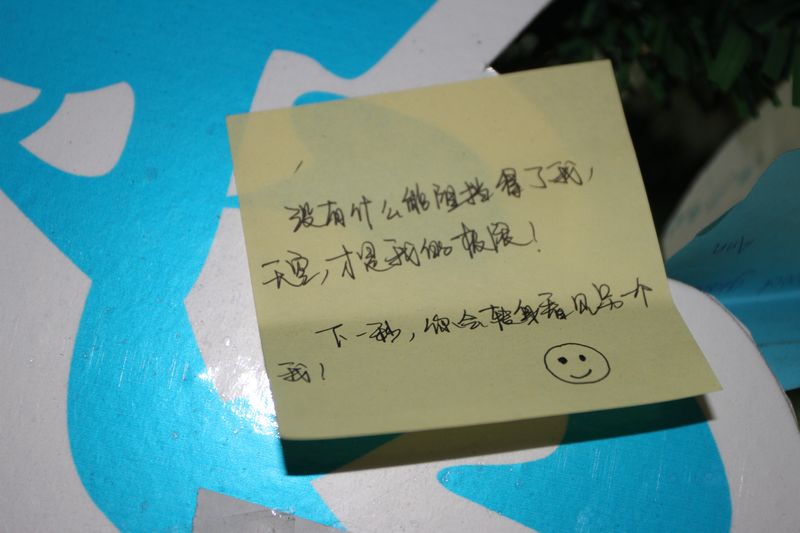 没有什么能阻挡得了我，
天空，才是我的极限！
下一秒，你会转身看见另一个
我！
Ann